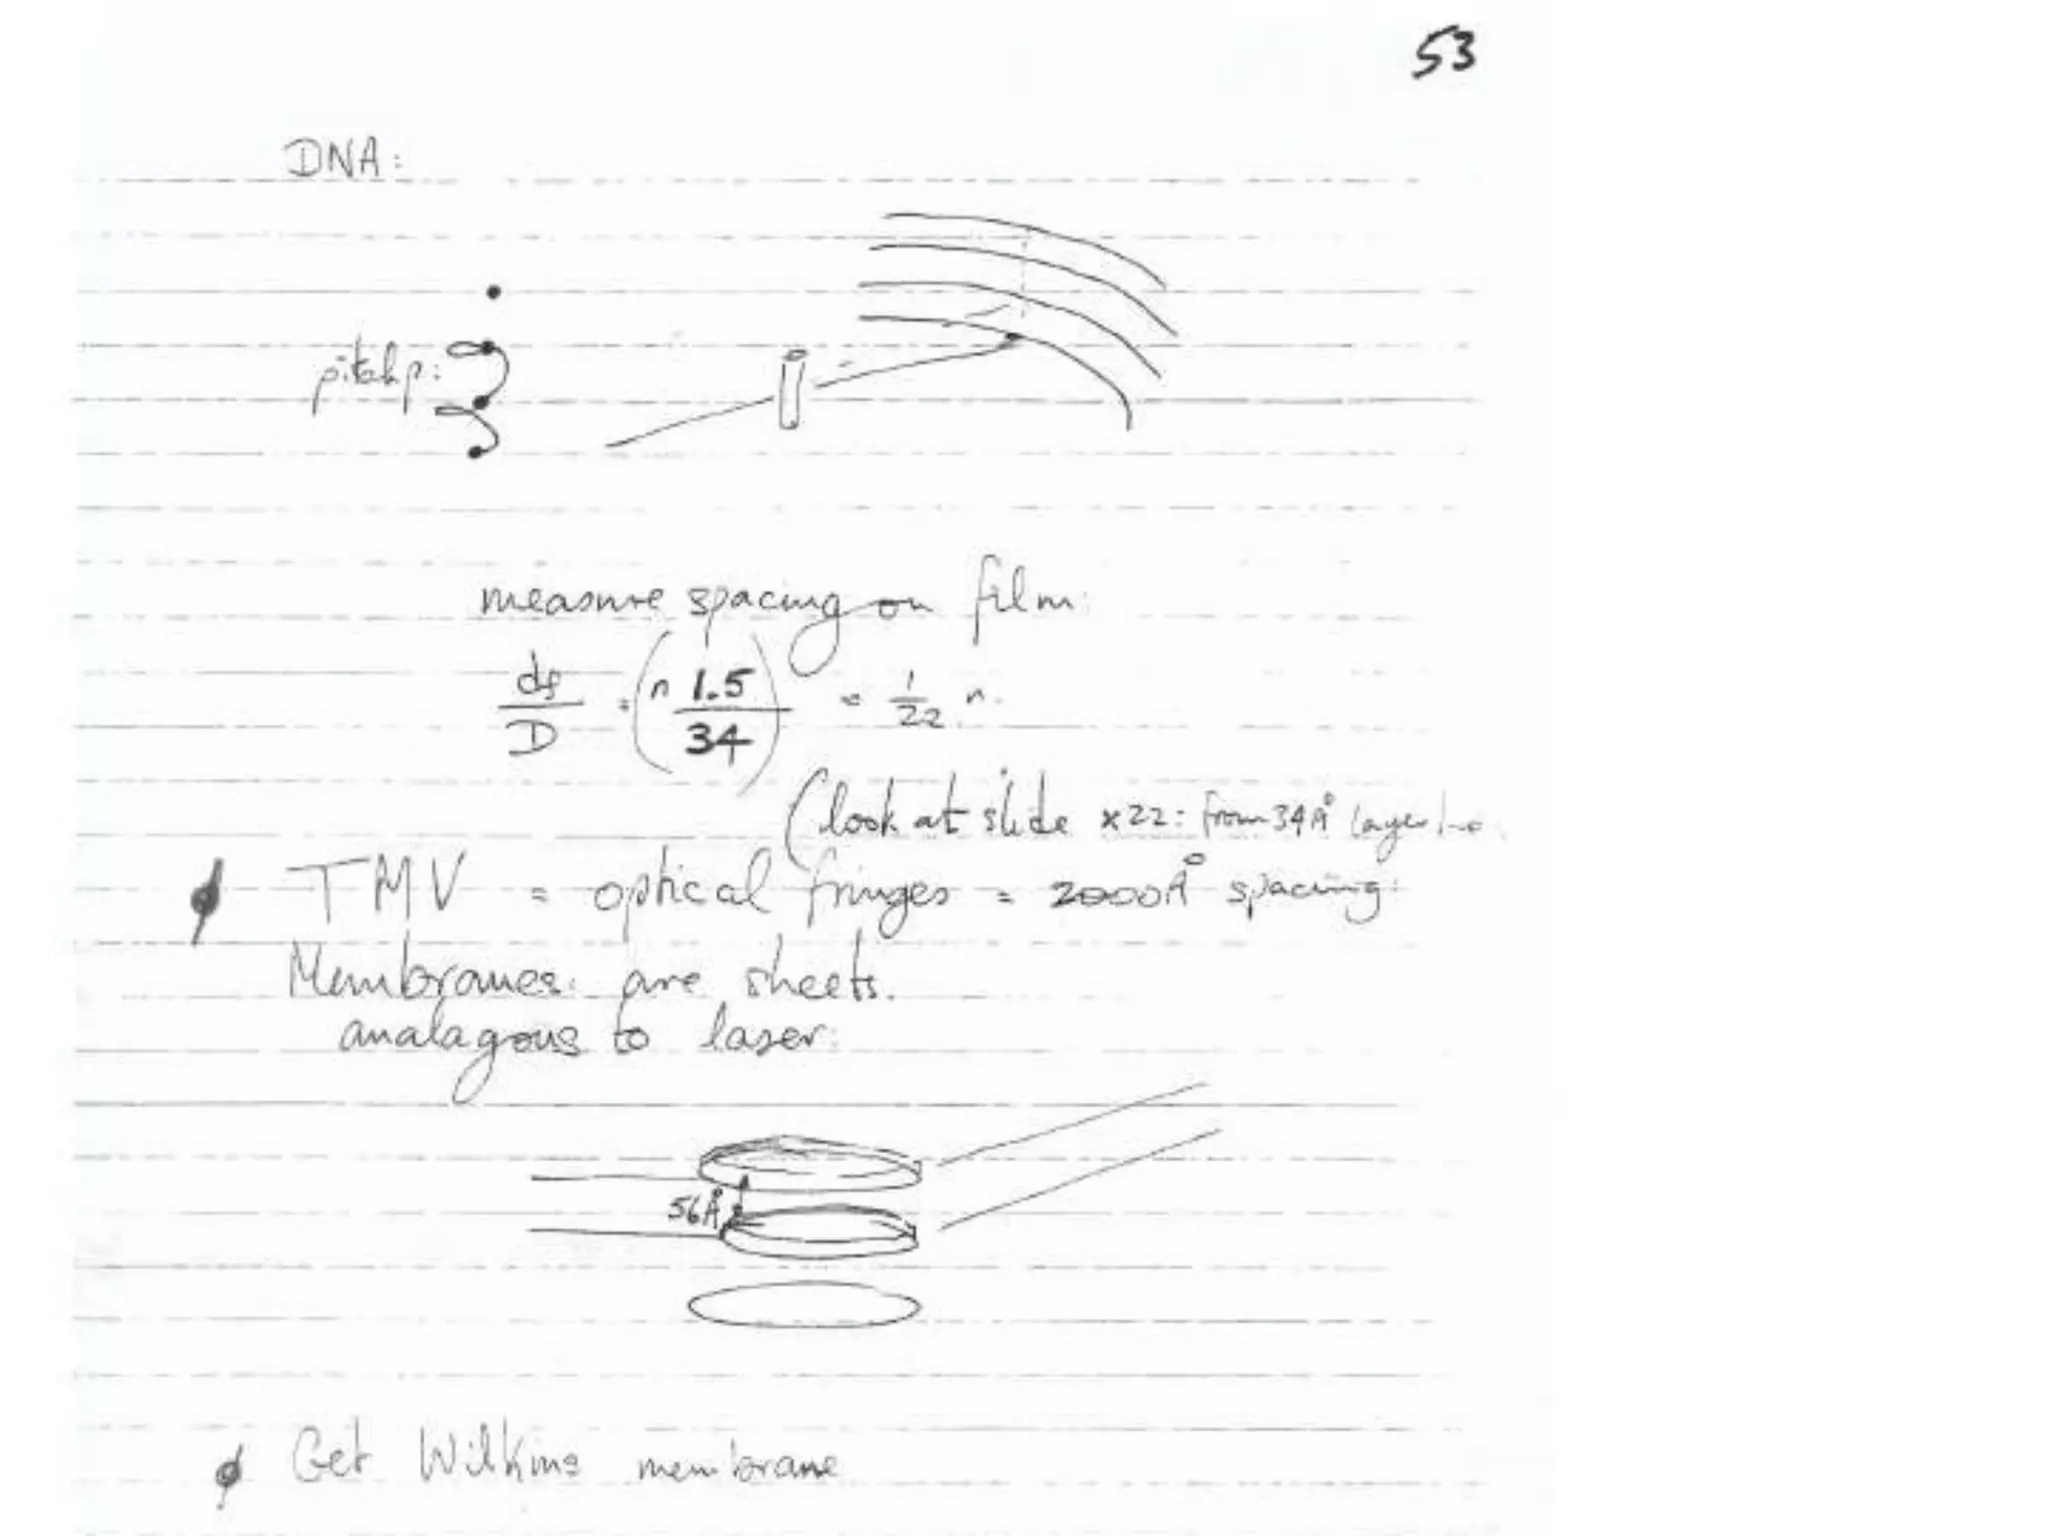 53
DNA:
pitch p:
measure spacing on film:
df/D = (n 1.5/34) = 1/22 n.
(look at slide x22: from 34Å layer
TMV = optical fringes = 2000Å spacing.
Membranes: are sheets.
analagous to laser:
56Å
Get Wilkins membrane